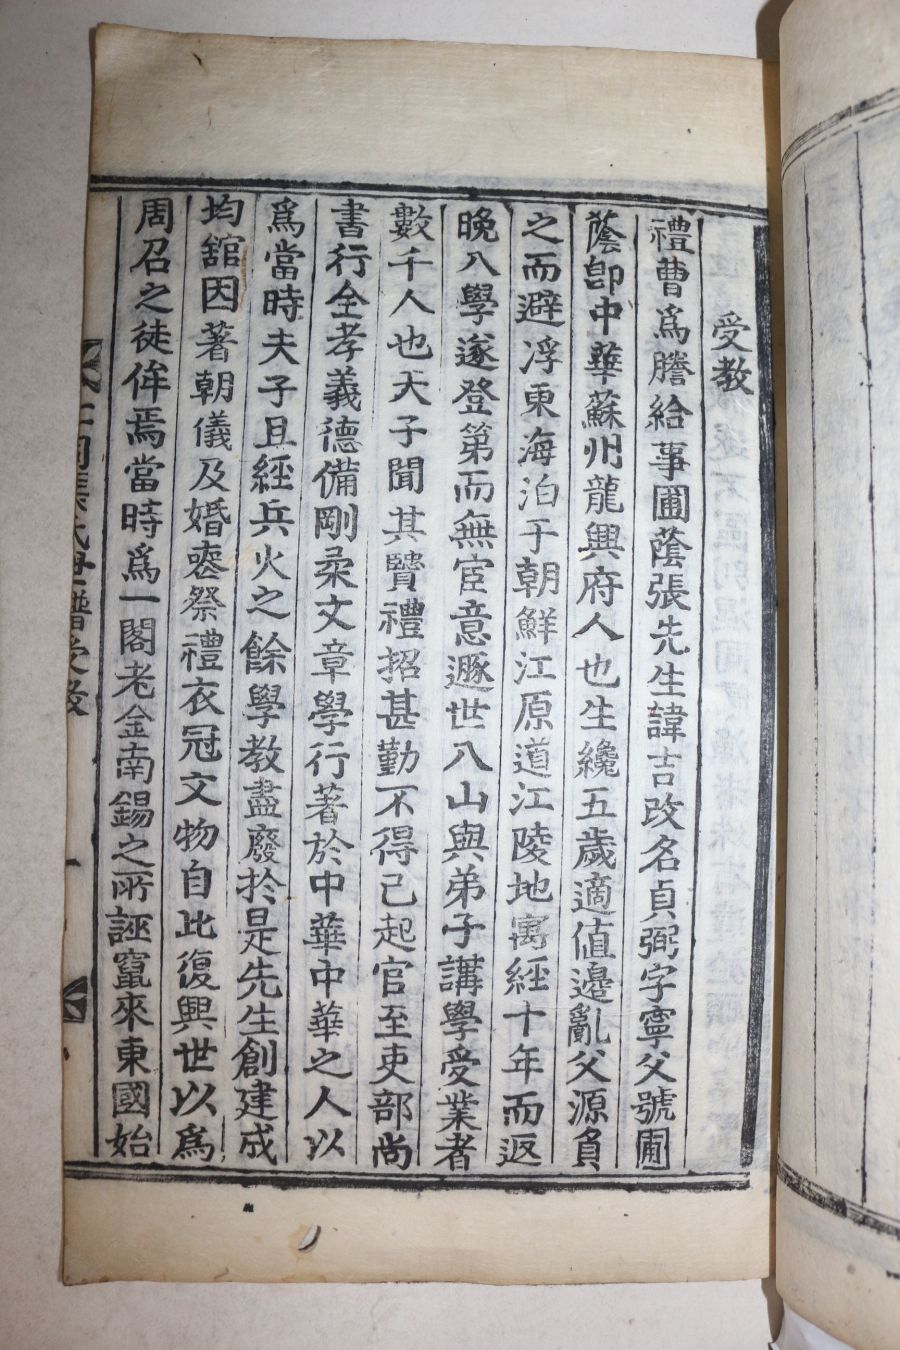 受教
禮曹爲謄給事圃蔭張先生諱吉改名貞弼字寧父號圃
蔭卽中華蘇州龍興府人也生纔五歲適値邊亂父源負
之而避浮東海泊于朝鮮江原道江陵地寓經十年而返
晩入學遂登第而無宦意遯世入山與弟子講學受業者
數千人也天子聞其賢禮招甚勤不得已起官至吏部尙
書行全孝義德備剛柔文章學行著於中華中華之人以
爲當時夫子且經兵火之餘學教盡廢於是先生創建成
均舘因著朝儀及婚喪祭禮衣冠文物自此復興世以爲
周召之徒侔焉當時爲一閣老金南錫之所誣竄來東國始